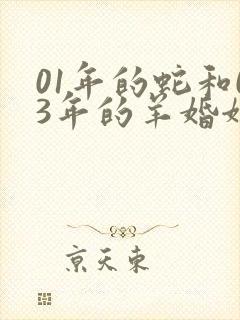 01年的蛇和
3年的羊婚
京天東